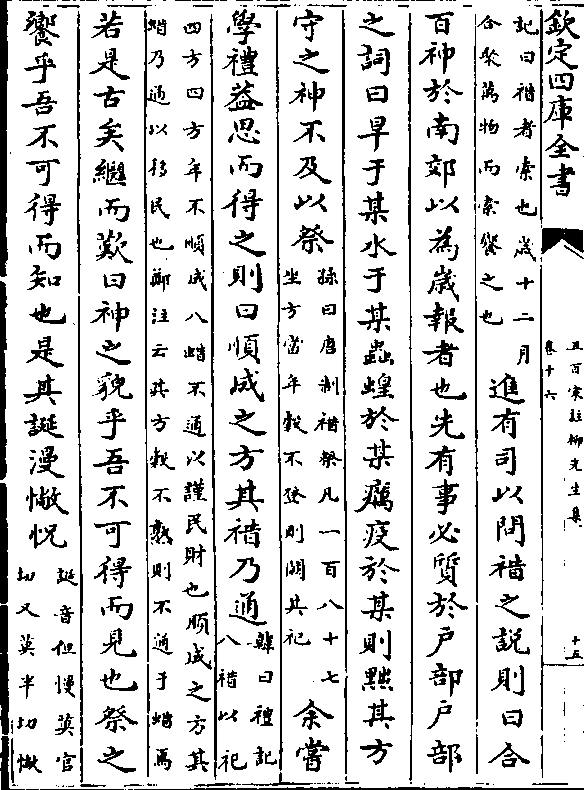 欽定四庫全書
五百家註柳先生集
卷十六
十五
記曰禇者索也歲十二月
合聚萬物而索饗之也
進有司以問禇之説則曰合
百神於南郊以為歲報者也先有事必質於户部户部
之詞曰旱于某水于某蟲蝗於某癘疫於某則黜其方
守之神不及以祭
孫曰唐制禇祭凡一百八十七
坐方當年榖不登則闕其祀
余嘗
學禮葢思而得之則曰順成之方其禇乃通
韓曰禮記
八禇以祀
四方四方年不順成八蜡不通以謹民財也順成之方其
蜡乃通以移民也鄭注云其方榖不熟則不通于蜡焉
若是古矣繼而歎曰神之貌乎吾不可得而見也祭之
饗乎吾不可得而知也是其誕漫惝怳
誕音但慢莫官
切又莫半切惝